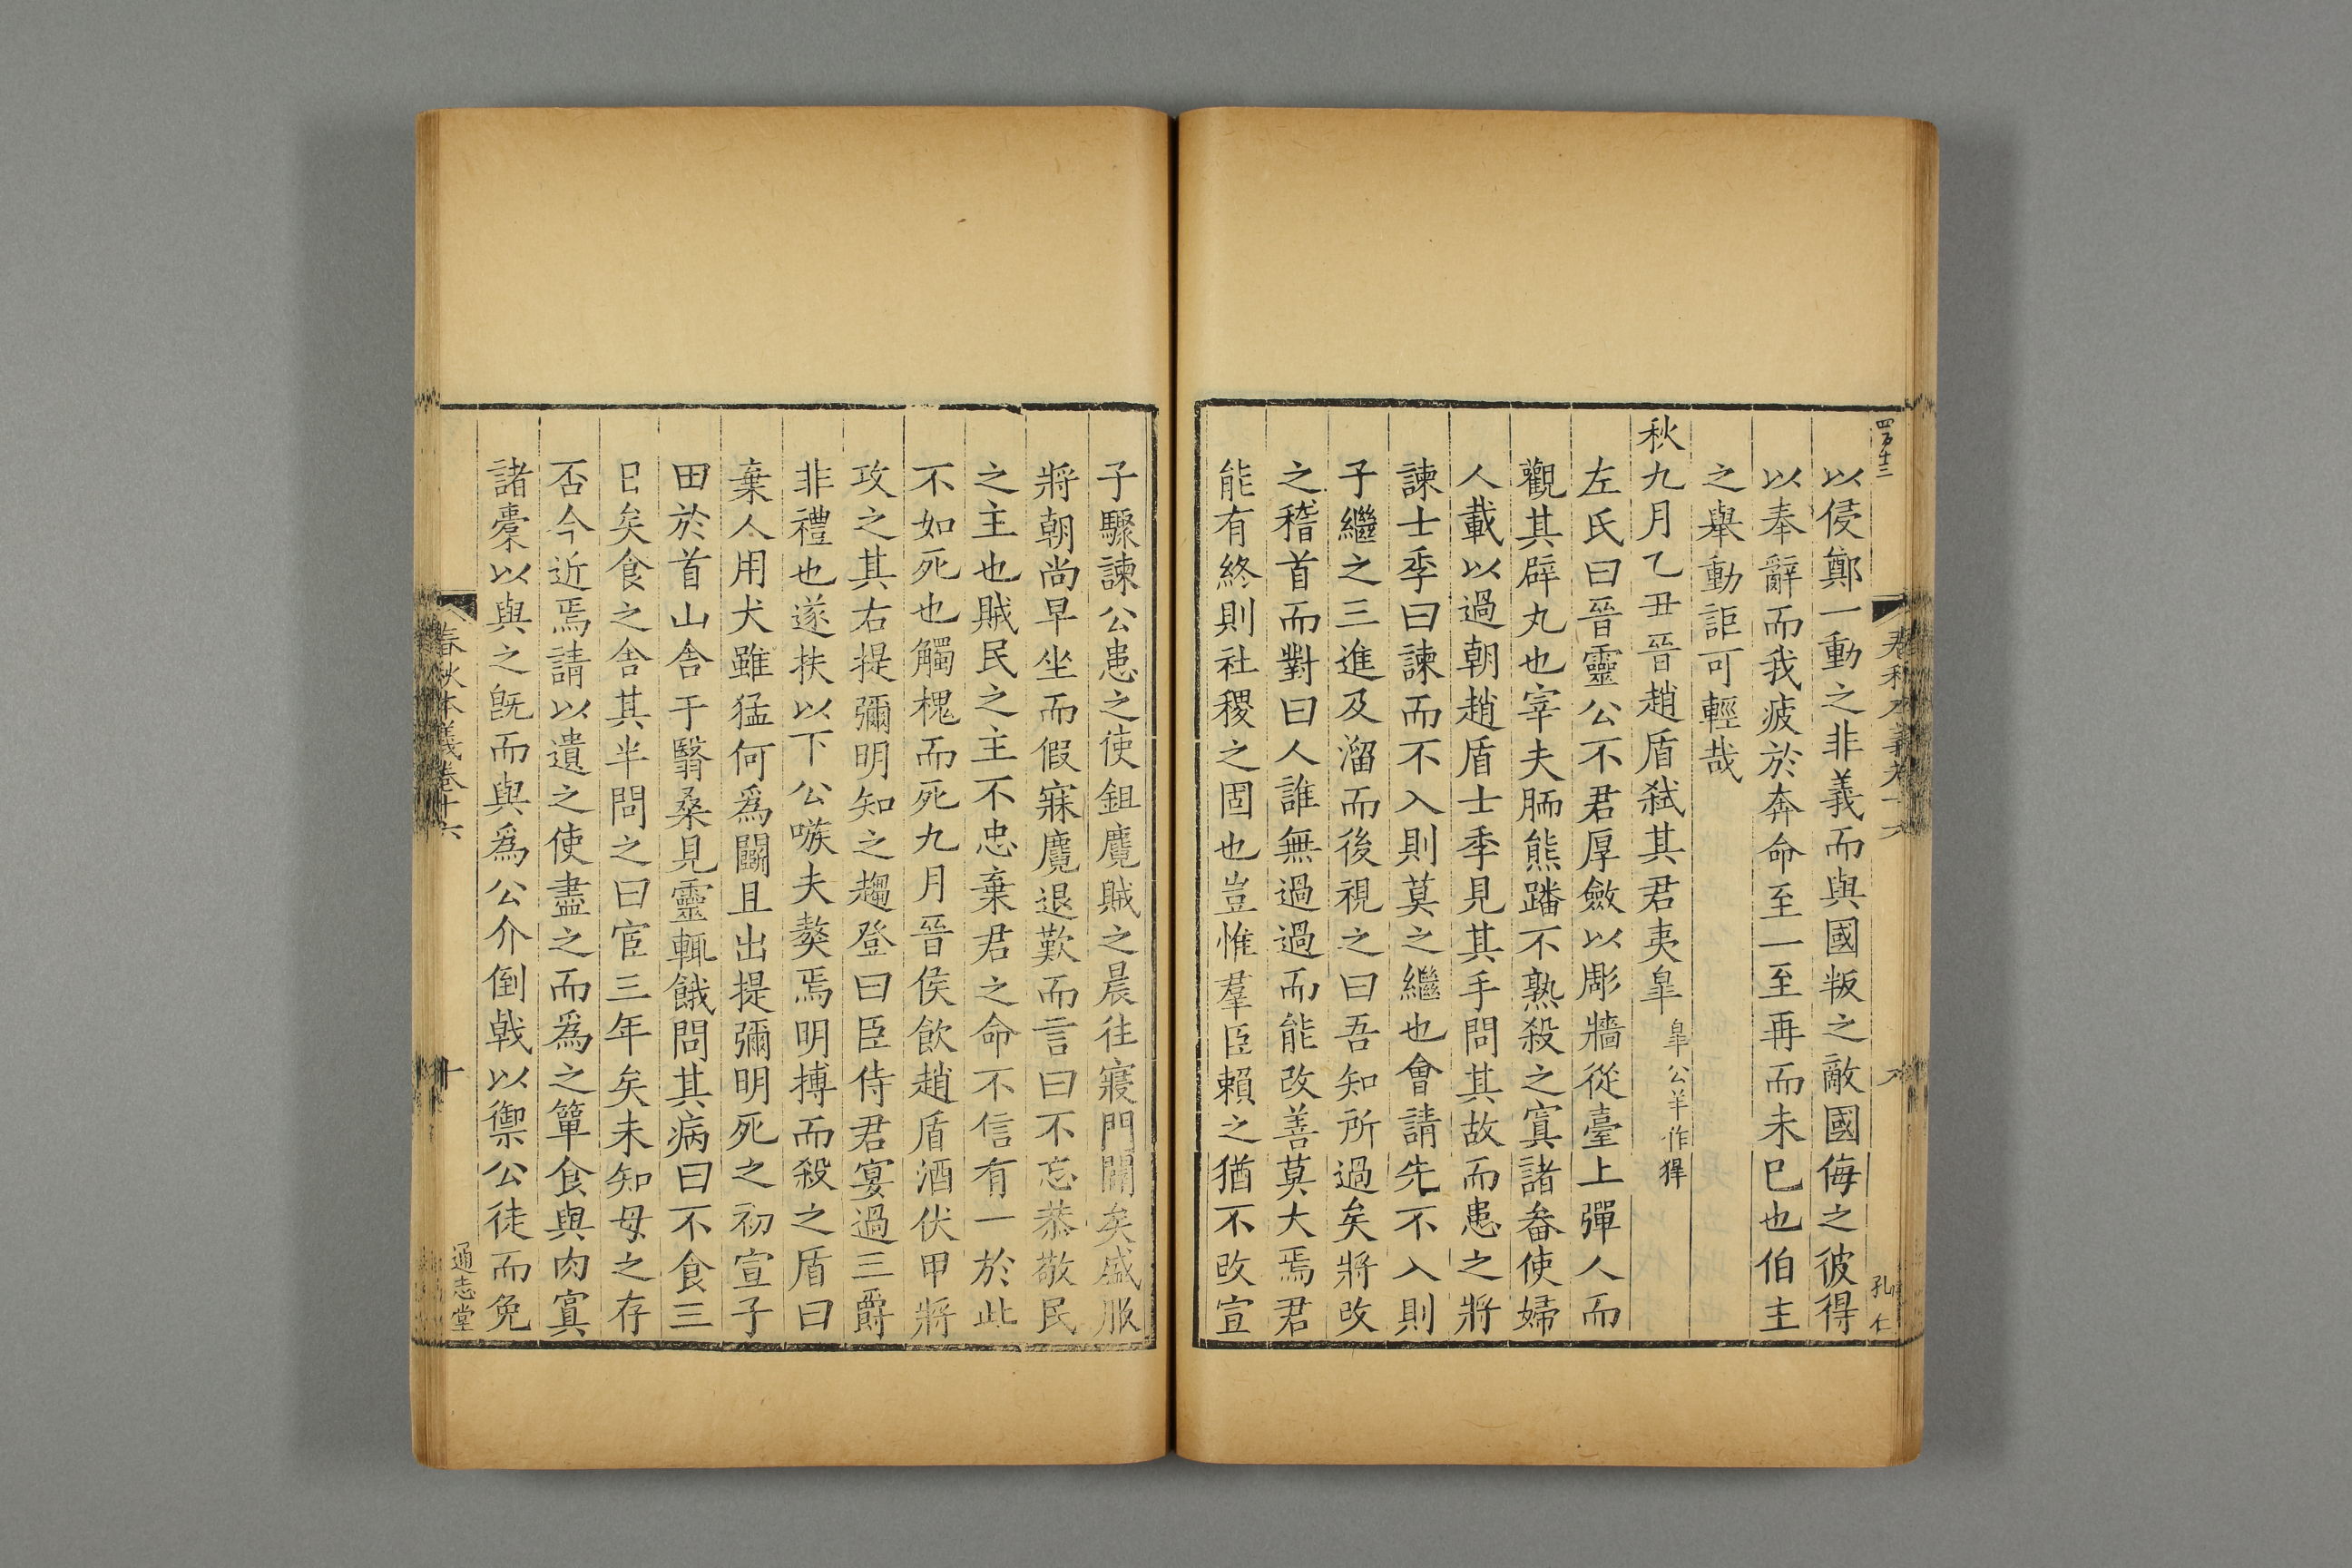 四百十三
春秋本義卷十六
孔仁
以侵鄭一動之非義而與國叛之敵國侮之彼得
以奉辭而我疲於奔命至一至再而未巳也伯主
之舉動詎可輕哉
秋九月乙丑晉趙盾弒其君夷臯臯公羊作獋
左氏曰晉靈公不君厚斂以彫牆從臺上彈人而
觀其辟丸也宰夫胹熊蹯不熟殺之寘諸畚使婦
人載以過朝趙盾士季見其手問其故而患之將
諫士季曰諫而不入則莫之繼也會請先不入則
子繼之三進及溜而後視之曰吾知所過矣將改
之稽首而對曰人誰無過過而能改善莫大焉君
能有終則社稷之固也豈惟羣臣賴之猶不改宣
子驟諫公患之使鉏麑賊之晨往寢門闢矣盛服
將朝尚早坐而假寐麑退歎而言曰不忘恭敬民
之主也賊民之主不忠棄君之命不信有一於此
不如死也觸槐而死九月晉侯飲趙盾酒伏甲將
攻之其右提彌明知之趨登曰臣侍君宴過三爵
非禮也遂扶以下公嗾夫獒焉明搏而殺之盾曰
棄人用犬雖猛何爲鬭且出提彌明死之初宣子
田於首山舍于翳桑見靈輒餓問其病曰不食三
日矣食之舍其半問之曰宦三年矣未知母之存
否今近焉請以遺之使盡之而爲之簞食與肉寘
諸橐以與之旣而與爲公介倒戟以禦公徒而免
春秋本義卷十六
十
通志堂